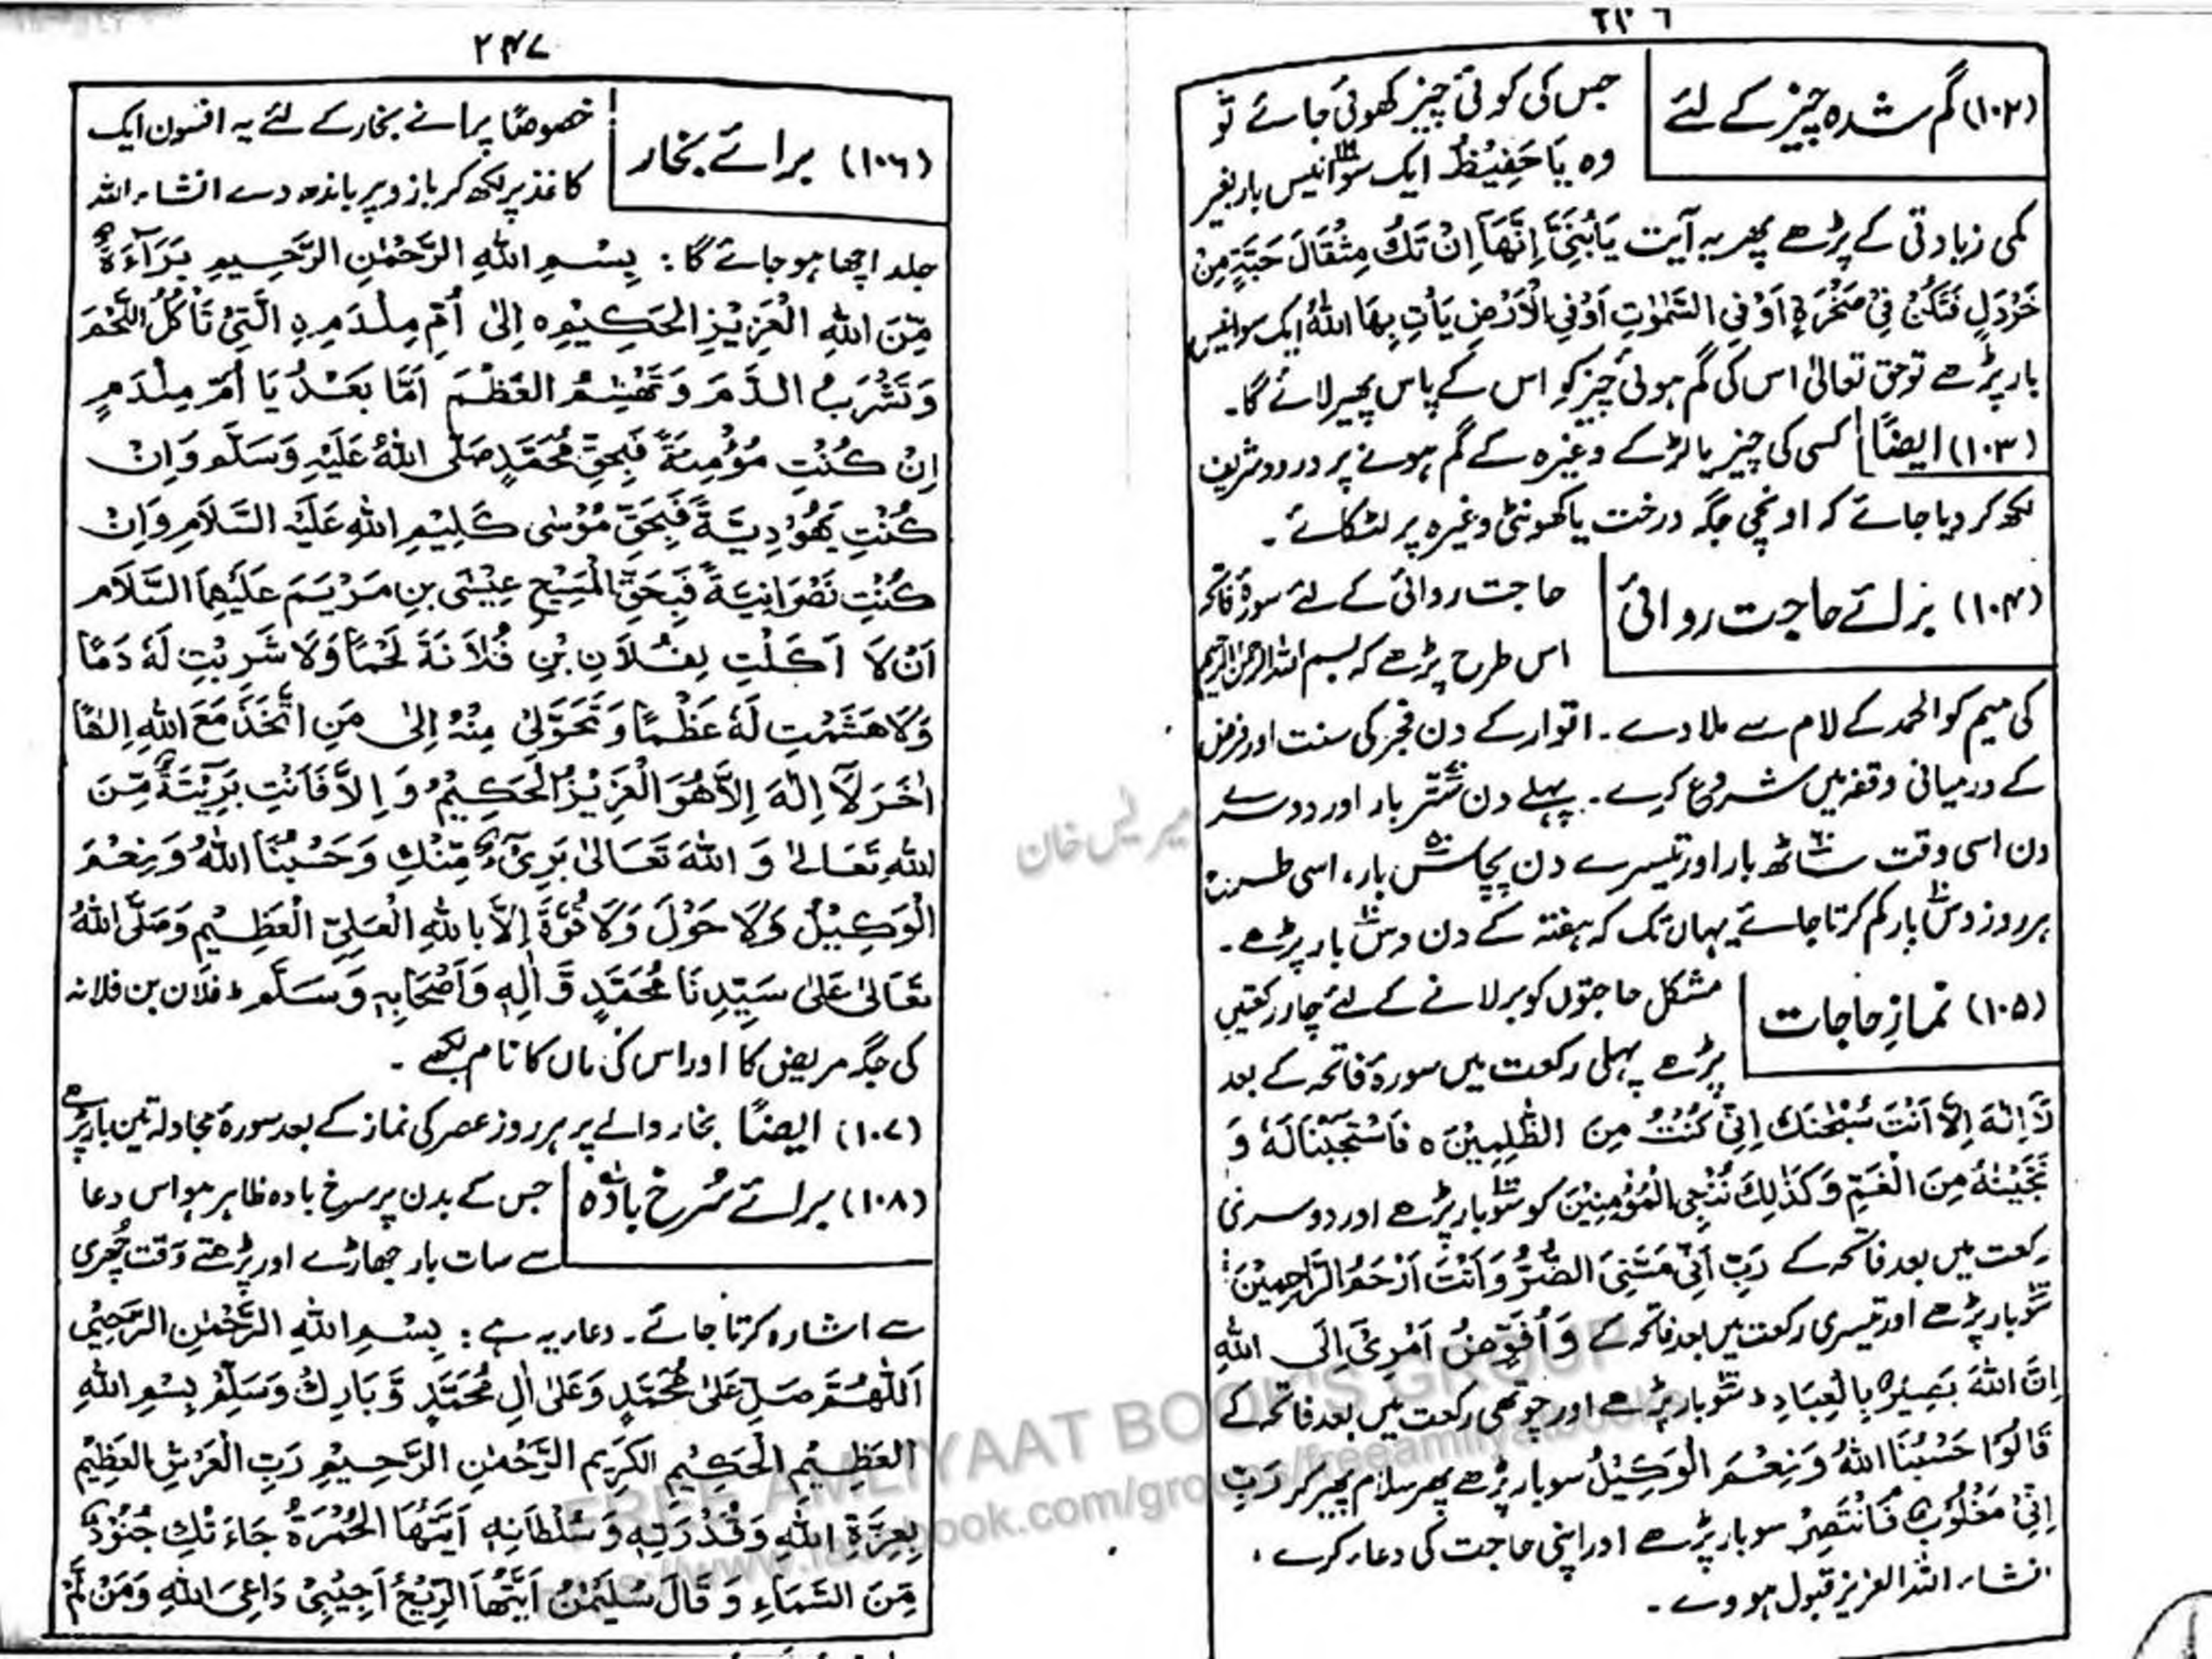 ۲۴۶
(۱۰۲) گم شدہ چیز کے لئے
جس کی کوئی چیز کھوئی جائے تو
وہ یَا حَفِیْظُ ایک سو انیس بار بغیر
کمی زیادتی کے پڑھے پھر یہ آیت یَابُنَیَّ اِنَّهَا اِنْ تَكُ مِثْقَالَ حَبَّةٍ مِنْ
خَرْدَلٍ فَتَكُنْ فِیْ صَخْرَةٍ اَوْ فِی السَّمٰوٰتِ اَوْ فِی الْاَرْضِ یَأْتِ بِهَا اللهُ ایک سو انیس
بار پڑھے تو حق تعالیٰ اس کی گم ہوئی چیز کو اس کے پاس پھیر لائے گا۔
(۱۰۳) ایضًا کسی کی چیز یا لڑکے وغیرہ کے گم ہونے پر درود شریف
لکھ کر دیا جائے کہ اونچی جگہ درخت یا کھونٹی وغیرہ پر لٹکائے۔
(۱۰۴) برائے حاجت روائی
حاجت روائی کے لئے سورۂ فاتحہ
اس طرح پڑھے کہ بسم اللہ الرحمن الرحیم
کی میم کو الحمد کے لام سے ملا دے۔ اتوار کے دن فجر کی سنت اور فرض
کے درمیانی وقفہ میں شروع کرے۔ پہلے دن ستّر بار اور دوسرے
دن اسی وقت ساٹھ ۶۰ بار اور تیسرے دن پچاس ۵۰ بار، اسی طرح
ہر روز دس ۱۰ بار کم کرتا جائے یہاں تک کہ ہفتہ کے دن دس ۱۰ بار پڑھے۔
(۱۰۵) نمازِ حاجات
مشکل حاجتوں کو بر لانے کے لئے چار رکعتیں
پڑھے پہلی رکعت میں سورۂ فاتحہ کے بعد
لَا اِلٰهَ اِلَّا اَنْتَ سُبْحٰنَكَ اِنِّیْ كُنْتُ مِنَ الظّٰلِمِیْنَ ہ فَاسْتَجَبْنَا لَهٗ وَ
نَجَّیْنٰهُ مِنَ الْغَمِّ وَكَذٰلِكَ نُنْجِی الْمُؤْمِنِیْنَ کو سو بار پڑھے اور دوسری
رکعت میں بعد فاتحہ کے رَبِّ اَنِّیْ مَسَّنِیَ الضُّرُّ وَاَنْتَ اَرْحَمُ الرَّاحِمِیْنَ
سو بار پڑھے اور تیسری رکعت میں بعد فاتحہ کے وَ اُفَوِّضُ اَمْرِیْ اِلَی اللهِ
اِنَّ اللهَ بَصِیْرٌ بِالْعِبَادِ سو بار پڑھے اور چوتھی رکعت میں بعد فاتحہ کے
قَالُوْا حَسْبُنَا اللهُ وَنِعْمَ الْوَكِیْلُ سو بار پڑھے پھر سلام پھیر کر رَبِّ
اِنِّیْ مَغْلُوْبٌ فَانْتَصِرْ سو بار پڑھے اور اپنی حاجت کی دعاء کرے،
انشاء اللہ العزیز قبول ہووے۔
۲۴۷
(۱۰۶) برائے بخار
خصوصًا پرانے بخار کے لئے یہ افسون ایک
کاغذ پر لکھ کر بازو پر باندھ دے انشاء اللہ
جلد اچھا ہو جائے گا: بِسْمِ اللهِ الرَّحْمٰنِ الرَّحِیْمِ بَرَآءَةٌ
مِّنَ اللهِ الْعَزِیْزِ الْحَكِیْمِ ہ اِلٰی اُمِّ مِلْدَمِ نِ الَّتِیْ تَأْكُلُ اللَّحْمَ
وَتَشْرَبُ الدَّمَ وَتَهْشِمُ الْعَظْمَ اَمَّا بَعْدُ یَا اُمَّ مِلْدَمٍ
اِنْ كُنْتِ مُؤْمِنَةً فَبِحَقِّ مُحَمَّدٍ صَلَّی اللهُ عَلَیْهِ وَسَلَّمَ وَاِنْ
كُنْتِ یَهُوْدِیَّةً فَبِحَقِّ مُوْسٰی كَلِیْمِ اللهِ عَلَیْهِ السَّلَامِ وَاِنْ
كُنْتِ نَصْرَانِیَّةً فَبِحَقِّ الْمَسِیْحِ عِیْسَی بْنِ مَرْیَمَ عَلَیْهِمَا السَّلَام
اَنْ لَا اَكَلْتِ لِفُلَانِ بْنِ فُلَانَةَ لَحْمًا وَلَا شَرِبْتِ لَهٗ دَمًا
وَلَا هَشَمْتِ لَهٗ عَظْمًا وَتَحَوَّلِیْ مِنْهُ اِلٰی مَنِ اتَّخَذَ مَعَ اللهِ اِلٰهًا
اٰخَرَ لَا اِلٰهَ اِلَّا هُوَ الْعَزِیْزُ الْحَكِیْمُ وَ اِلَّا فَاَنْتِ بَرِیْئَةٌ مِّنَ
اللهِ تَعَالٰی وَ اللهُ تَعَالٰی بَرِیْءٌ مِّنْكِ وَحَسْبُنَا اللهُ وَنِعْمَ
الْوَكِیْلُ وَلَا حَوْلَ وَلَا قُوَّةَ اِلَّا بِاللهِ الْعَلِیِّ الْعَظِیْمِ وَصَلَّی اللهُ
تَعَالٰی عَلٰی سَیِّدِنَا مُحَمَّدٍ وَّاٰلِهٖ وَاَصْحَابِهٖ وَسَلَّمَ فلان بن فلانہ
کی جگہ مریض کا اور اس کی ماں کا نام لکھے۔
(۱۰۷) ایضًا بخار والے پر ہر روز عصر کی نماز کے بعد سورۂ مجادلہ تین بار پڑھے
(۱۰۸) برائے سُرخ بادہ
جس کے بدن پر سرخ بادہ ظاہر ہو اس دعا
سے سات بار جھاڑے اور پڑھتے وقت چُھری
سے اشارہ کرتا جائے۔ دعاء یہ ہے: بِسْمِ اللهِ الرَّحْمٰنِ الرَّحِیْمِ
اَللّٰهُمَّ صَلِّ عَلٰی مُحَمَّدٍ وَعَلٰی اٰلِ مُحَمَّدٍ وَّ بَارِكْ وَسَلِّمْ بِسْمِ اللهِ
الْعَظِیْمِ الْحَكِیْمِ الْكَرِیْمِ الرَّحْمٰنِ الرَّحِیْمِ رَبِّ الْعَرْشِ الْعَظِیْمِ
بِعِزَّةِ اللهِ وَقُدْرَتِهٖ وَسُلْطَانِهٖ اَیَّتُهَا الْحُمْرَةُ جَاءَتْكِ جُنُوْدٌ
مِّنَ السَّمَاءِ وَ قَالَ سُلَیْمٰنُ اَیَّتُهَا الرِّیْحُ اَجِیْبِیْ دَاعِیَ اللهِ وَمَنْ لَّمْ
FREE AMLIYAAT BOOK'S GROUP
https://www.facebook.com/groups/freeamliyatbooks